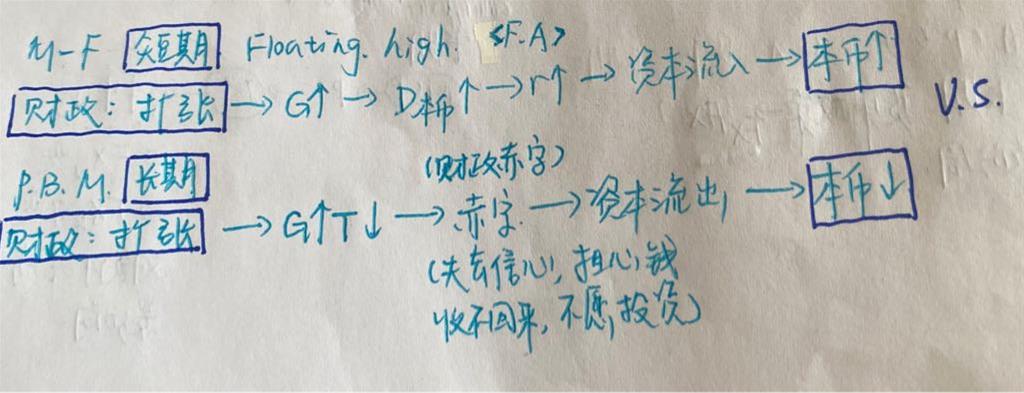 M-F 短期 Floating. high. <F.A>
财政：扩张 → G↑ → D本币↑ → r↑ → 资本流入 → 本币↑ V.S.
(财政赤字)
P.B.M. 长期
财政：扩张 → G↑T↓ → 赤字. → 资本流出 → 本币↓
(失去信心, 担心钱
收不回来, 不愿投资)